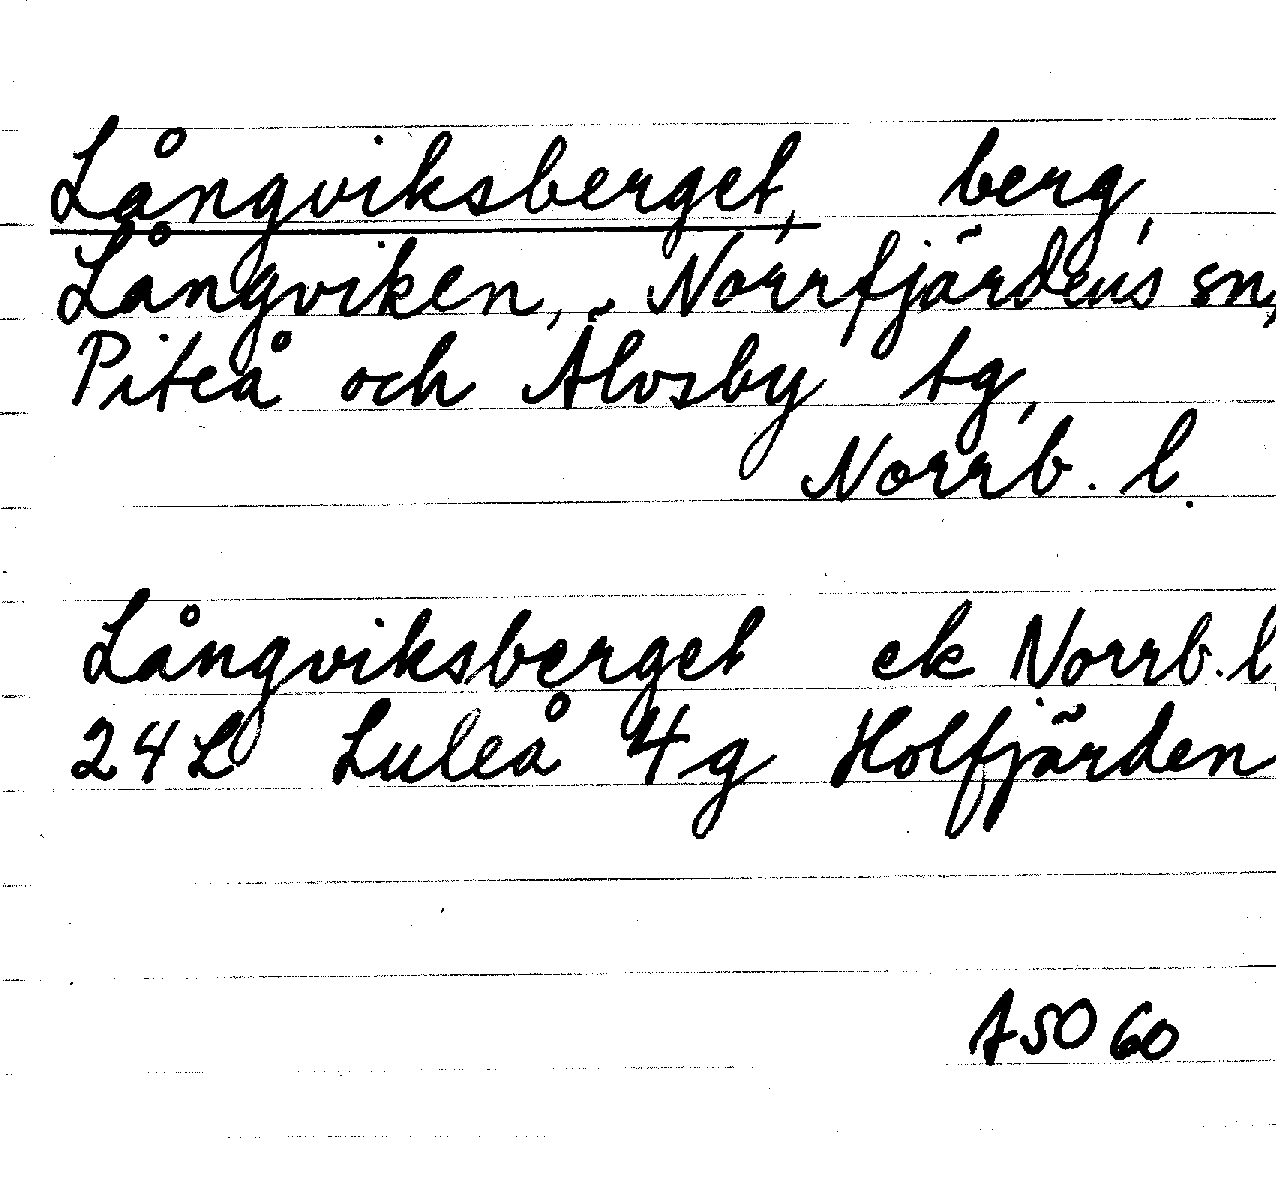 Långviksberget, berg,
Långviken, Norrfjärdens sn,
Piteå och Älvsby tg,
Norrb. l.
Långviksberget ek Norrb. l
24 L Luleå 4g Holfjärden
ASO 60